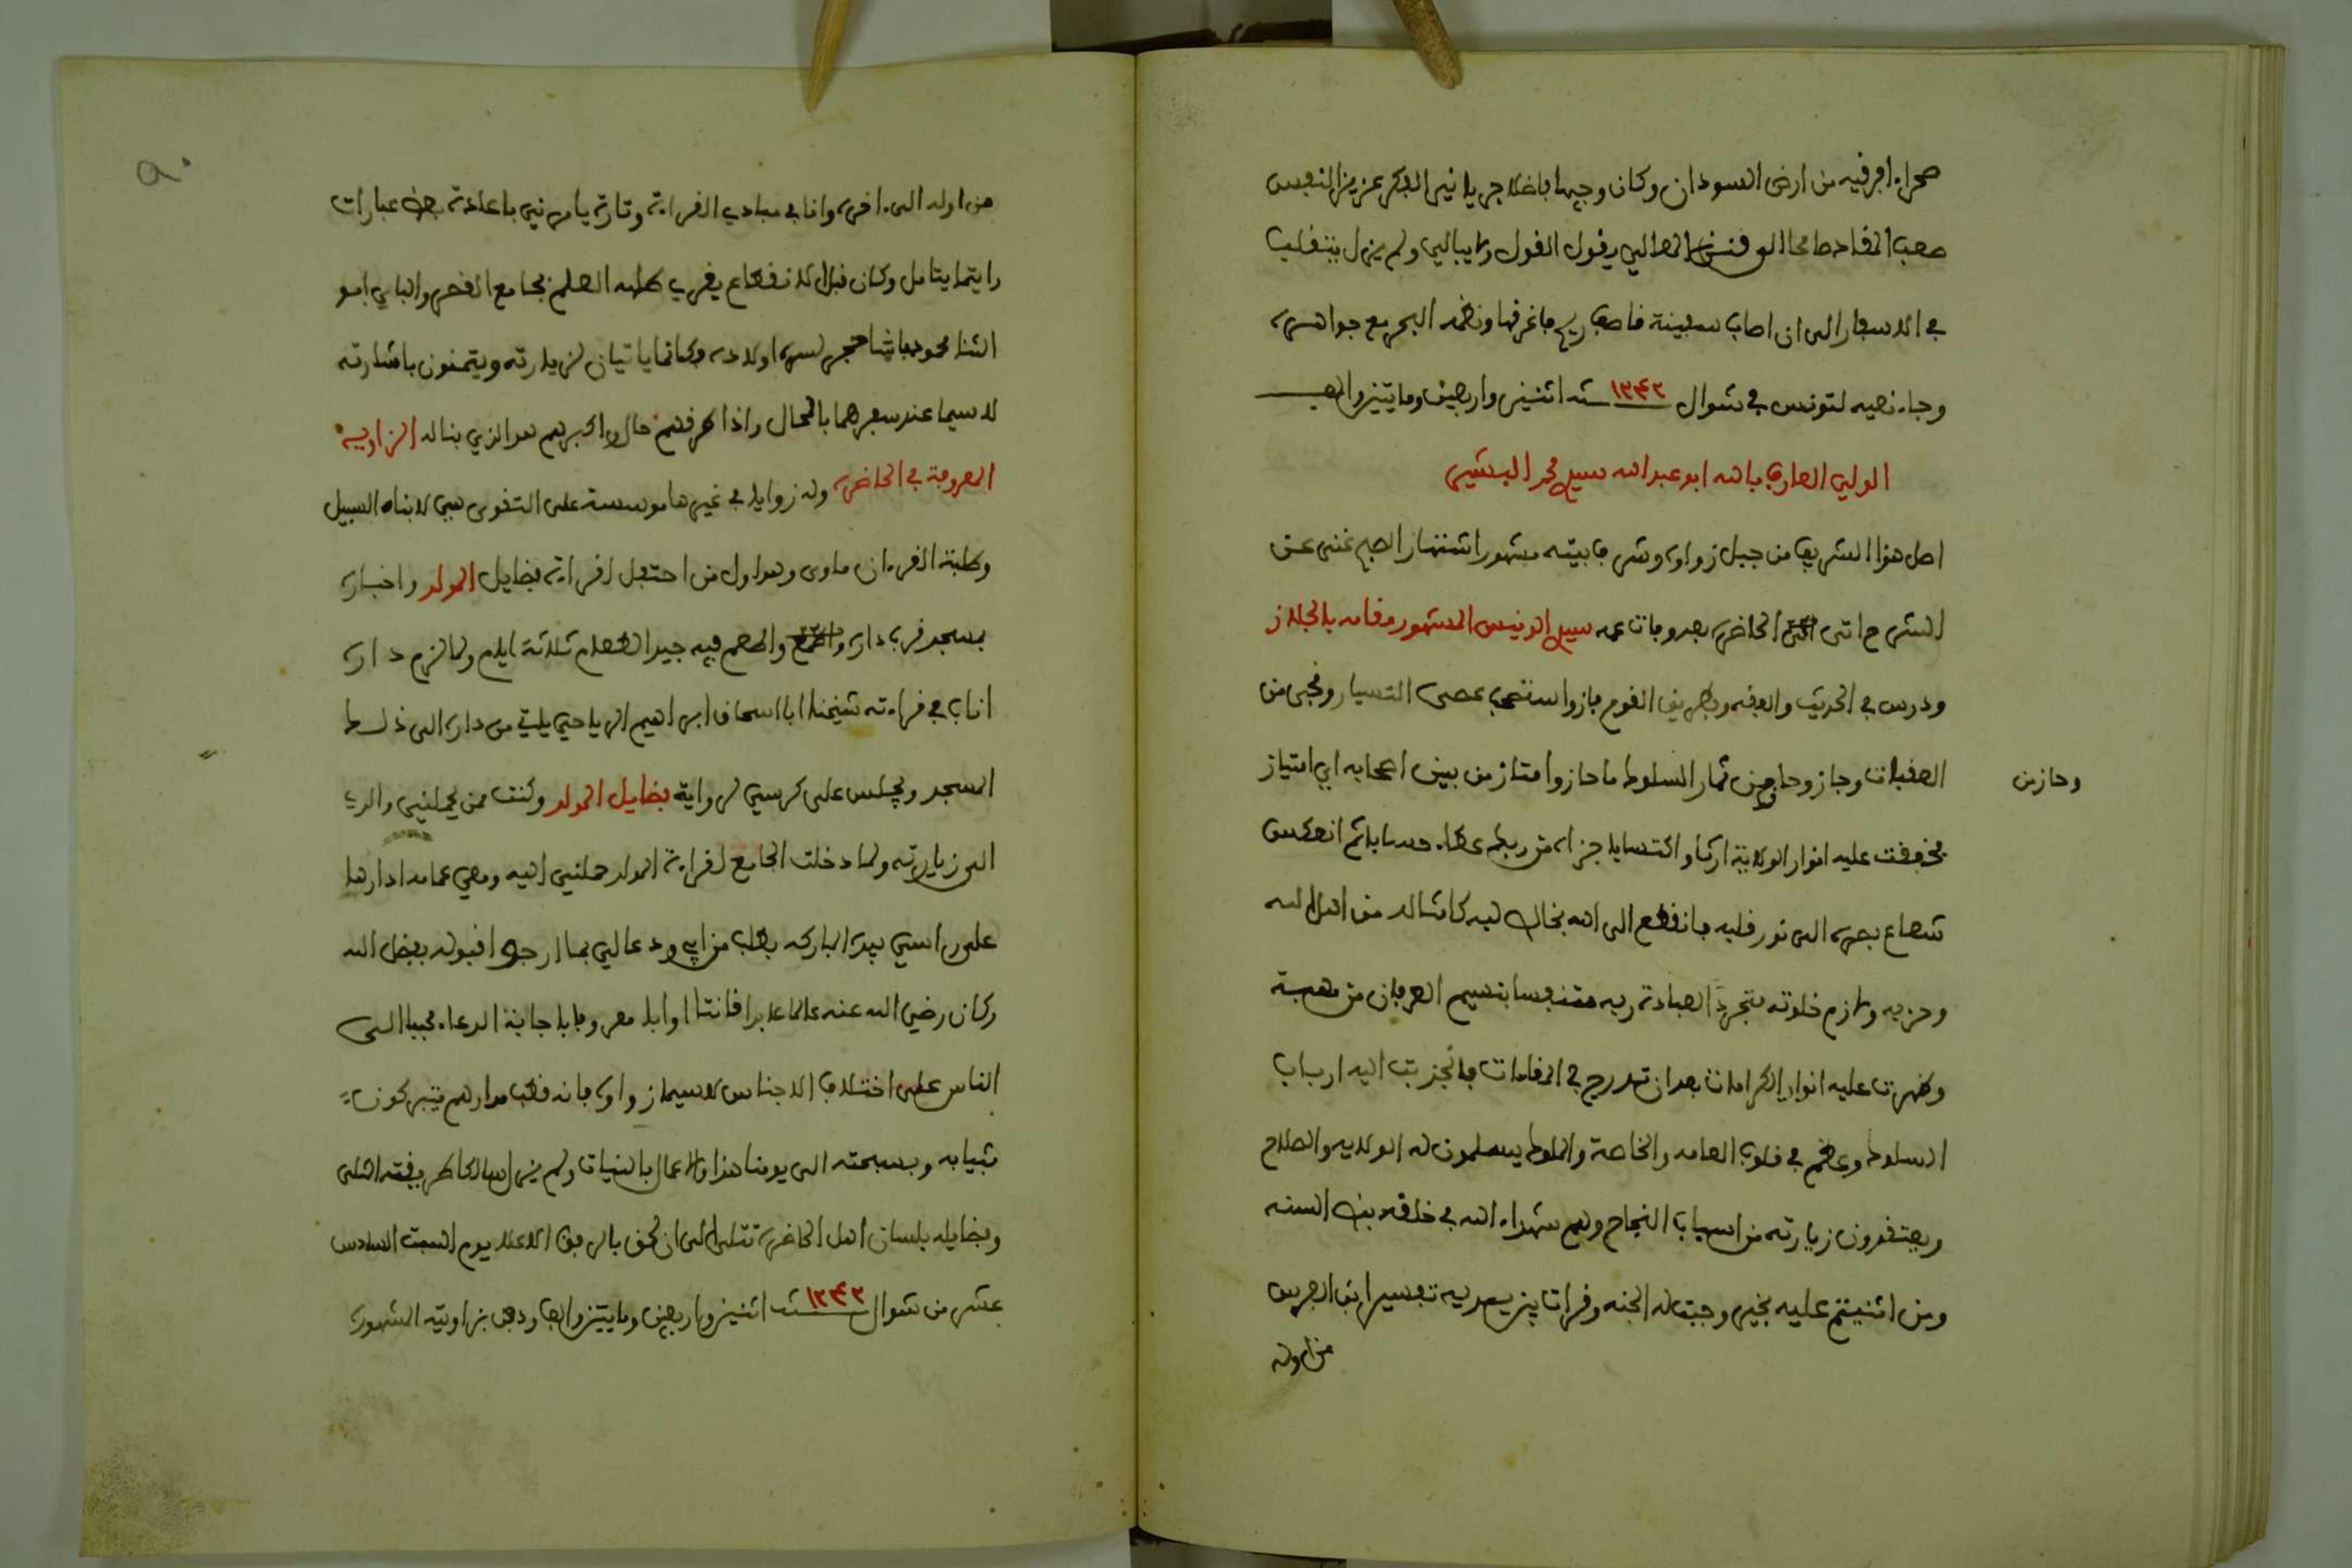 صحراء افريقية من ارض السودان وكان وجيها فاضلا جريا نير الفكر عزيز النفس
صعب المقادة طامحا الى المعالي يقول القول ولا يبالي ولم يزل يتقلب
في الاسفار الى ان اصاب سفينة قاصف ريح فاغرقها ونظمه البحر مع جواهره
وجاء نعيه لتونس في شوال ١٢٤٢ سنة اثنين واربعين ومايتين والف
الولي العارف بالله ابو عبد الله سيدي محمد البشير
اصل هذا الشريف من جبل زواوه وشرف بيته مشهور اشتهار الصبح غني عن
الشرح اتى الحاضره بعد وفات عمه سيدي الونيس المشهور مقامه بالجلاز
ودرس في الحديث والفقه وطريق القوم فاز واستصحب عصى التسيار ونجى من
العقبات وجاز وحاز من ثمار السلوك ما حاز وامتاز من بين اصحابه اي امتياز
وحاز من
فخفقت عليه انوار الولاية ارثا واكتسابا جزاء من ربك عطاء حسابا ثم انعكس
شعاع بصره الى نور قلبه فانقطع الى الله بخالص لبه كامثاله من اهل الله
وحزبه ولازم خلوته متجردا لعبادة ربه متنفسا بنسيم العرفان من مهبه
وظهرت عليه انوار الكرامات بعد ان تدرج في المقامات فانجذبت اليه ارباب
السلوك وعظم في قلوب العامه والخاصة والملوك يسلمون له الولايه والصلاح
ويعتقدون زيارته من اسباب النجاح وهم شهداء الله في خلقه بنص السنه
ومن اثنيتم عليه بخير وجبت له الجنه وقرات بين يديه تفسير ابن العربي
من اوله
٩٠
من اوله الى اخره وانا في مبادي القراءة وتارة يامرني باعادة بعض عبارات
رايتها يتامل وكان قبل الانقطاع يقري طلبه العلم بجامع القصر والباي ابو
الثنا محمود باشا حجر لسره اولاده وكانا ياتيان لزيارته ويتيمنون باشارته
لا سيما عند سفرهما بالمحال واذا ... قال ... اكبرهم هو الذي بنا له الزاويه
المعروفة في الحاضره وله زوايا في غيرها موسسة على التقوى هي لابناء السبيل
وطلبة القرءان ماوى وهو اول من احتفل لقراءة فضايل المولد واخباره
بمسجد قرب داره واطعم فيه جيد الطعام ثلاثة ايام ولما لزم داره
اناب في قراءته شيخنا ابا اسحاق ابراهيم الرياحي ياتي من داره الى ذلك
المسجد ويجلس على كرسي لرواية فضايل المولد وكنت ممن يحملني والدي
الى زيارته ولما دخلت الجامع لقراءة المولد حملني اليه ومعي عمامه ادارها
على راسي بيده المباركه بطلب من ابي ودعا لي بما ارجو قبوله بفضل الله
وكان رضي الله عنه عالما عابدا قانتا اوابا معروفا باجابة الدعاء محببا الى
الناس على اختلاف الاجناس لا سيما زواوه فانه قطب مدارهم يتبركون
بثيابه وبسبحته الى يومنا هذا والاعمال بالنيات ولم يزل سالكا طريقته المثلى
وفضايله بلسان اهل الحاضره تتلى الى ان لحق بالرفيق الاعلا يوم السبت السادس
عشر من شوال ١٢٤٢ سنة اثنين واربعين ومايتين والف ودفن بزاويته الشهيره